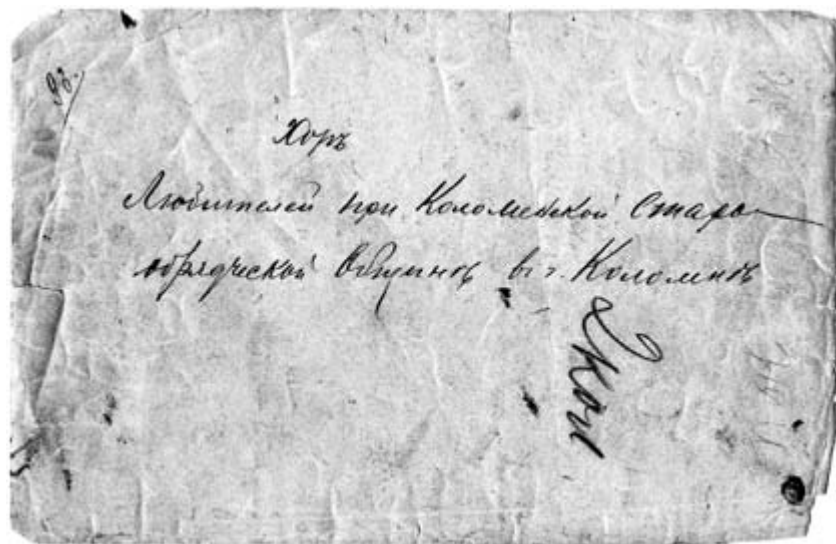 Хоръ
Любителей при Коломенской Старо-
обрядческой Общинѣ въ г. Коломнѣ